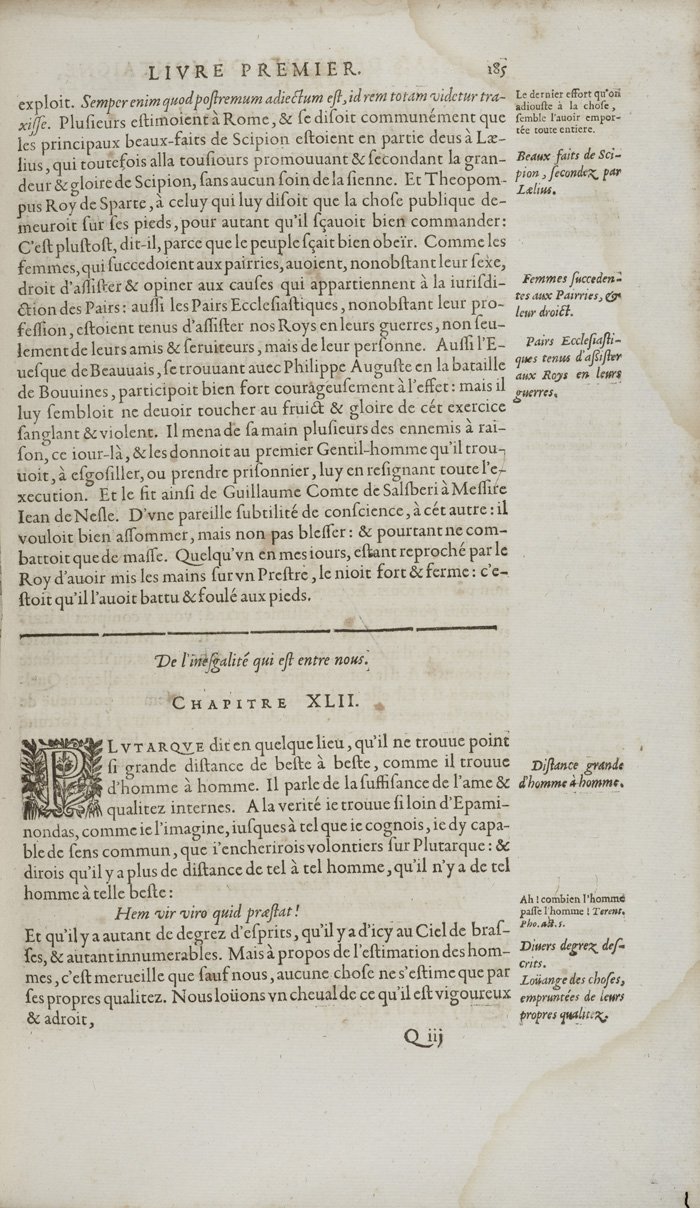 LIVRE PREMIER. 185
exploit. Semper enim quod postremum adiectum est, id rem totam videtur tra-
xisse. Plusieurs estimoient à Rome, & se disoit communément que
les principaux beaux-faits de Scipion estoient en partie deus à Læ-
lius, qui toutefois alla tousiours promouuant & secondant la gran-
deur & gloire de Scipion, sans aucun soin de la sienne. Et Theopom-
pus Roy de Sparte, à celuy qui luy disoit que la chose publique de-
meuroit sur ses pieds, pour autant qu'il sçauoit bien commander:
C'est plustost, dit-il, parce que le peuple sçait bien obeïr. Comme les
femmes, qui succedoient aux pairries, auoient, nonobstant leur sexe,
droit d'assister & opiner aux causes qui appartiennent à la iurisdi-
ction des Pairs: aussi les Pairs Ecclesiastiques, nonobstant leur pro-
fession, estoient tenus d'assister nos Roys en leurs guerres, non seu-
lement de leurs amis & seruiteurs, mais de leur personne. Aussi l'E-
uesque de Beauuais, se trouuant auec Philippe Auguste en la bataille
de Bouuines, participoit bien fort courageusement à l'effet: mais il
luy sembloit ne deuoir toucher au fruict & gloire de cét exercice
sanglant & violent. Il mena de sa main plusieurs des ennemis à rai-
son, ce iour-là, & les donnoit au premier Gentil-homme qu'il trou-
uoit, à esgosiller, ou prendre prisonnier, luy en resignant toute l'e-
xecution. Et le fit ainsi de Guillaume Comte de Salsberi à Messire
Iean de Nesle. D'vne pareille subtilité de conscience, à cét autre: il
vouloit bien assommer, mais non pas blesser: & pourtant ne com-
battoit que de masse. Quelqu'vn en mes iours, estant reproché par le
Roy d'auoir mis les mains sur vn Prestre, le nioit fort & ferme: c'e-
stoit qu'il l'auoit battu & foulé aux pieds.
Le dernier effort qu'on
adiouste à la chose,
semble l'auoir empor-
tée toute entiere.
Beaux faits de Sci-
pion, secondez par
Lælius.
Femmes succeden-
tes aux Pairries, &
leur droict.
Pairs Ecclesiasti-
ques tenus d'assister
aux Roys en leurs
guerres.
De l'inesgalité qui est entre nous.
CHAPITRE XLII.
PLVTARQVE dit en quelque lieu, qu'il ne trouue point
si grande distance de beste à beste, comme il trouue
d'homme à homme. Il parle de la suffisance de l'ame &
qualitez internes. A la verité ie trouue si loin d'Epami-
nondas, comme ie l'imagine, iusques à tel que ie cognois, ie dy capa-
ble de sens commun, que i'encherirois volontiers sur Plutarque: &
dirois qu'il y a plus de distance de tel à tel homme, qu'il n'y a de tel
homme à telle beste:
Hem vir viro quid præstat!
Et qu'il y a autant de degrez d'esprits, qu'il y a d'icy au Ciel de bras-
ses, & autant innumerables. Mais à propos de l'estimation des hom-
mes, c'est merueille que sauf nous, aucune chose ne s'estime que par
ses propres qualitez. Nous loüons vn cheual de ce qu'il est vigoureux
& adroit,
Distance grande
d'homme à homme.
Ah! combien l'homme
passe l'homme! Terent.
Pho. act. 5.
Diuers degrez des-
crits.
Loüange des choses,
empruntées de leurs
propres qualitez.
Q iij